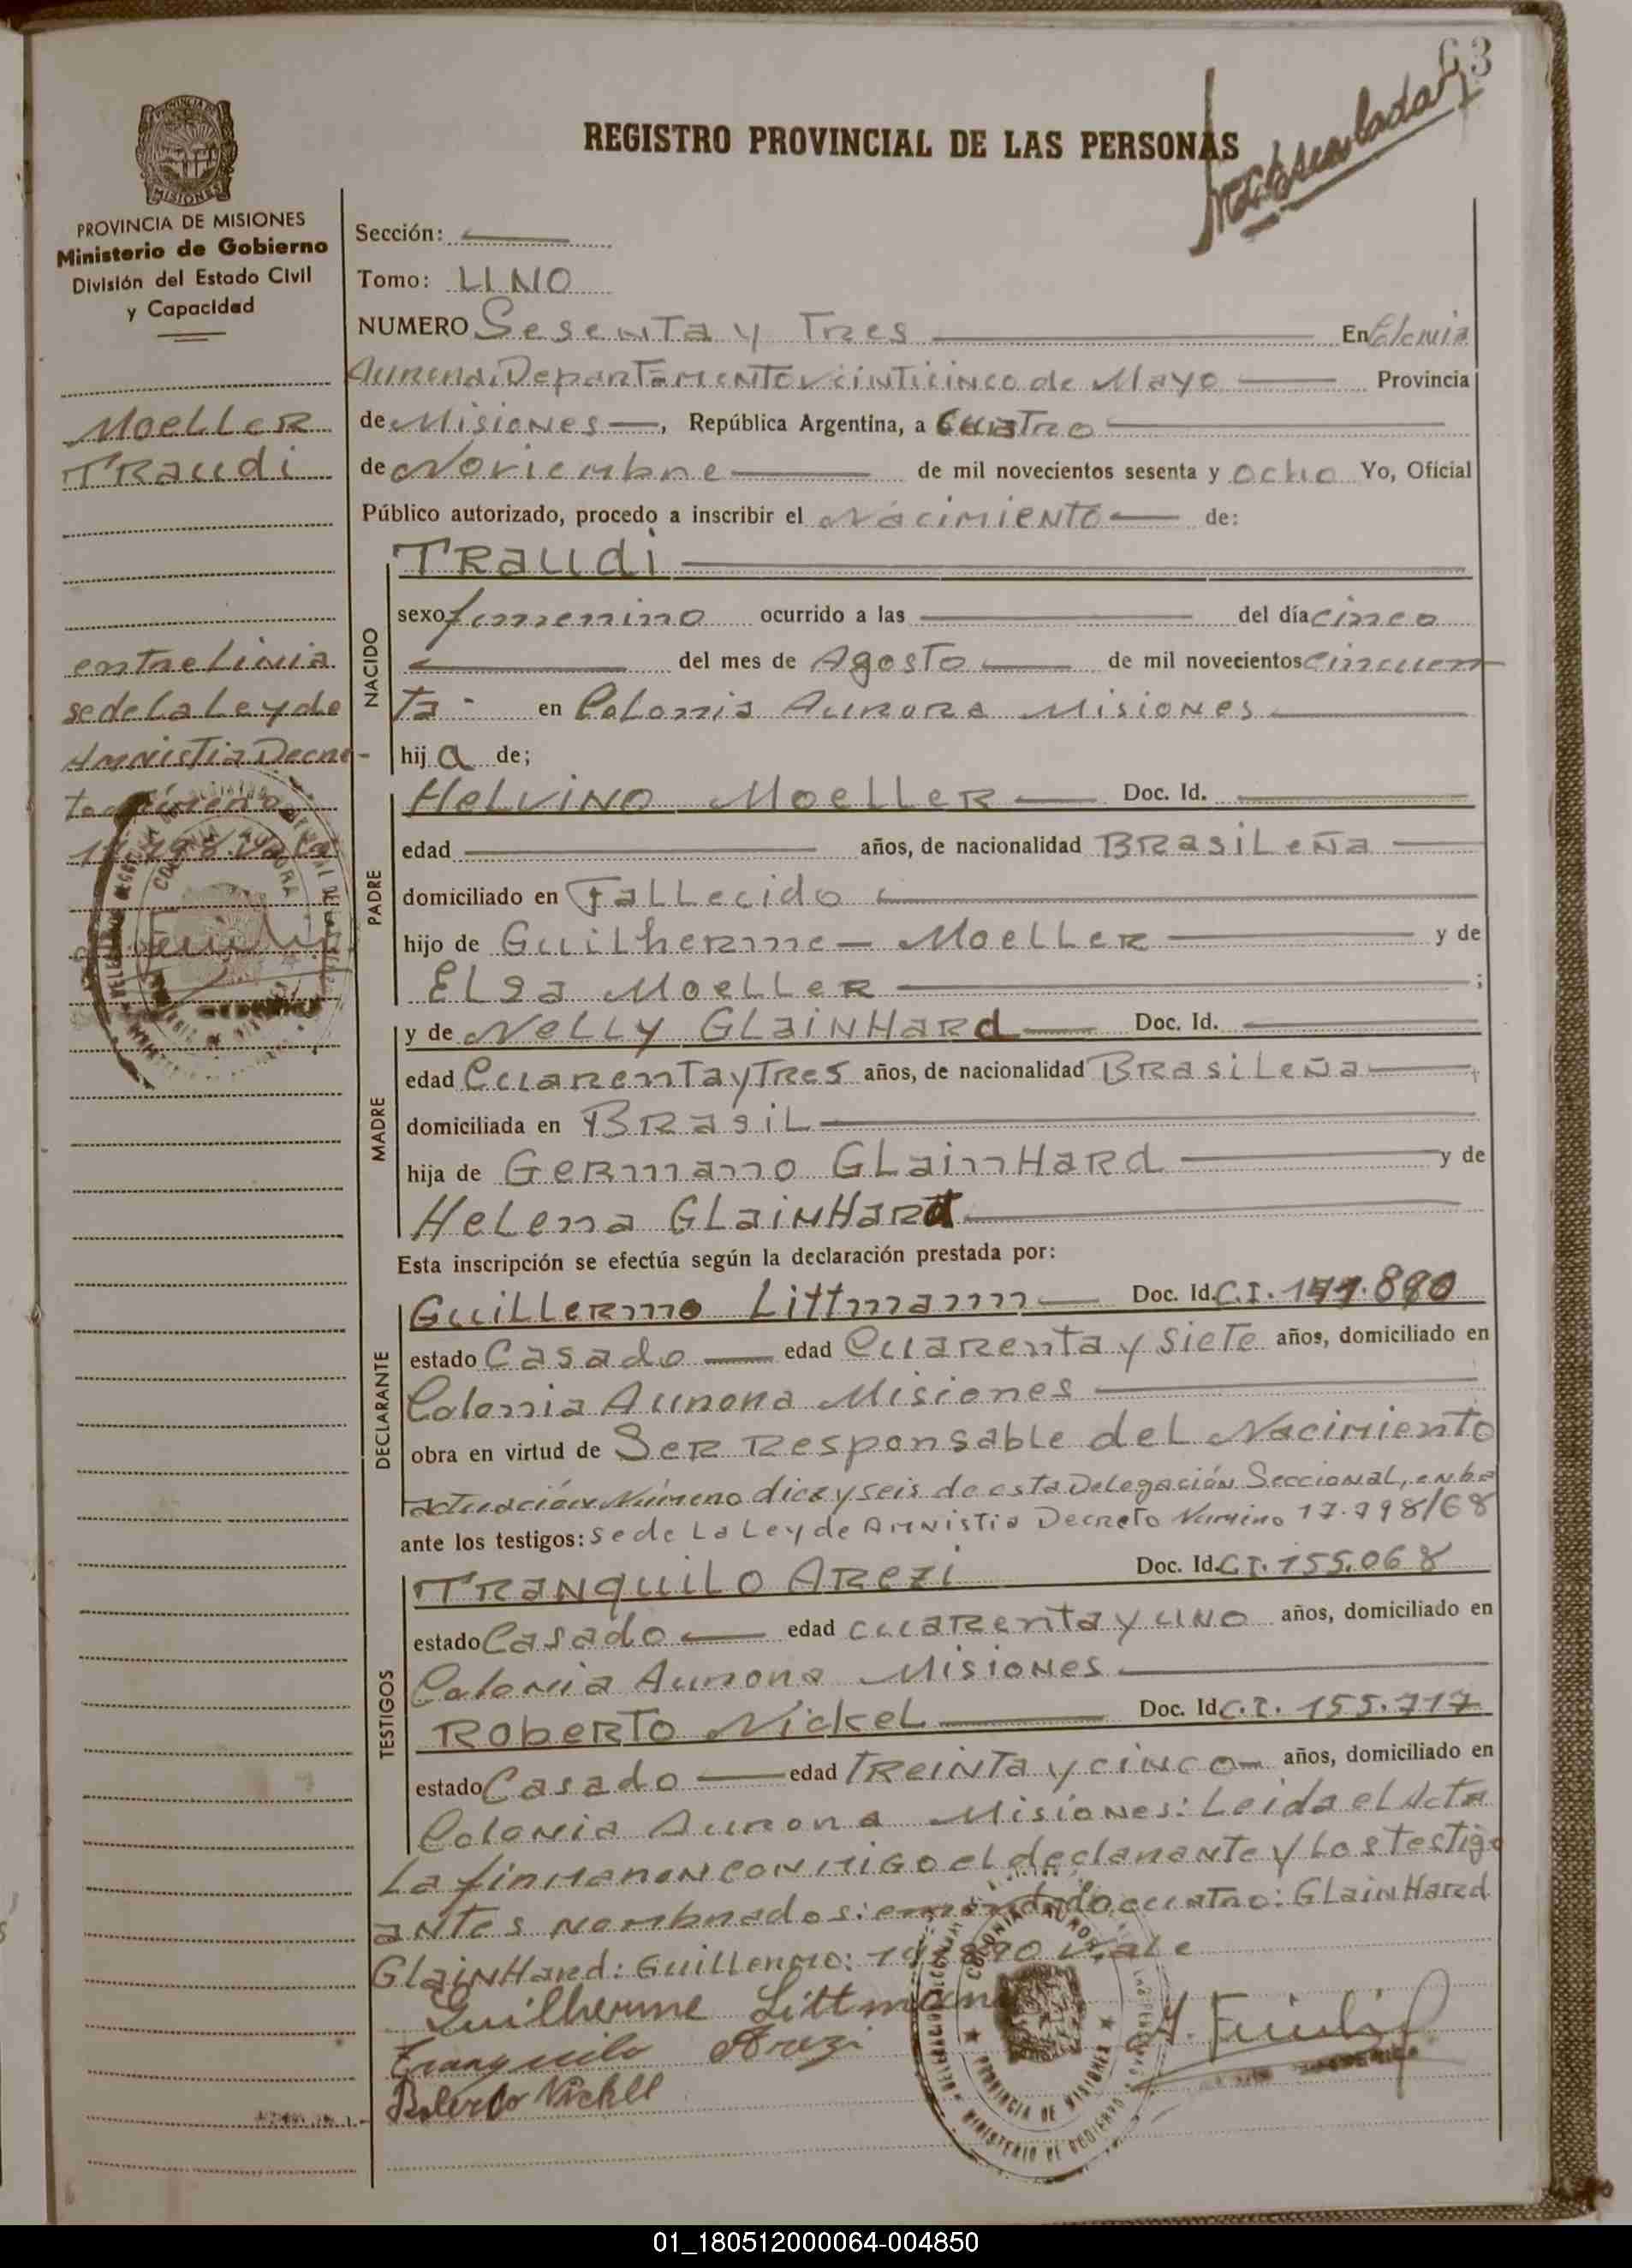 63
Matriculada
REGISTRO PROVINCIAL DE LAS PERSONAS
PROVINCIA DE MISIONES
Ministerio de Gobierno
División del Estado Civil
y Capacidad
Moeller
Traudi
entre linia
se de la Ley de
Amnistia Decre-
to Número
Sección:
Tomo: UNO
NUMERO Sesenta y Tres En Colonia
Aurora, Departamento Veinticinco de Mayo Provincia
de Misiones, República Argentina, a Cuatro
de Noviembre de mil novecientos sesenta y ocho Yo, Oficial
Público autorizado, procedo a inscribir el Nacimiento de:
NACIDO
Traudi
sexo femenino ocurrido a las del día cinco
del mes de Agosto de mil novecientos cincuen
ta en Colonia Aurora Misiones
hija de;
PADRE
Helvino Moeller Doc. Id.
edad años, de nacionalidad Brasileña
domiciliado en Fallecido
hijo de Guilherme Moeller y de
Elsa Moeller ;
MADRE
y de Nelly Glainhard Doc. Id.
edad Cuarenta y Tres años, de nacionalidad Brasileña
domiciliada en Brasil
hija de Germano Glainhard y de
Helena Glainhard
Esta inscripción se efectúa según la declaración prestada por:
DECLARANTE
Guillermo Littmann Doc. Id. C.I. 890
estado Casado edad Cuarenta y Siete años, domiciliado en
Colonia Aurora Misiones
obra en virtud de Ser Responsable del Nacimiento
actuación Número diez y seis de esta Delegación Seccional, en ba
ante los testigos: se de La Ley de Amnistia Decreto Número 17.798/68
TESTIGOS
Tranquilo Arezi Doc. Id. C.I. 155.068
estado Casado edad cuarenta y uno años, domiciliado en
Colonia Aurora Misiones
Roberto Nickel Doc. Id. C.I. 155.717
estado Casado edad Treinta y cinco años, domiciliado en
Colonia Aurora Misiones: Leida el Acta
La firmaron conmigo el declarante y Los testigo
antes nombrados: enmendado cuatro: Glainhard
Glainhard: Guillermo: Vale
Guilherme Littmann
Tranquilo Arezi
Roberto Nickel
COLONIA AURORA
PROVINCIA DE MISIONES
MINISTERIO DE GOBIERNO
01_180512000064-004850